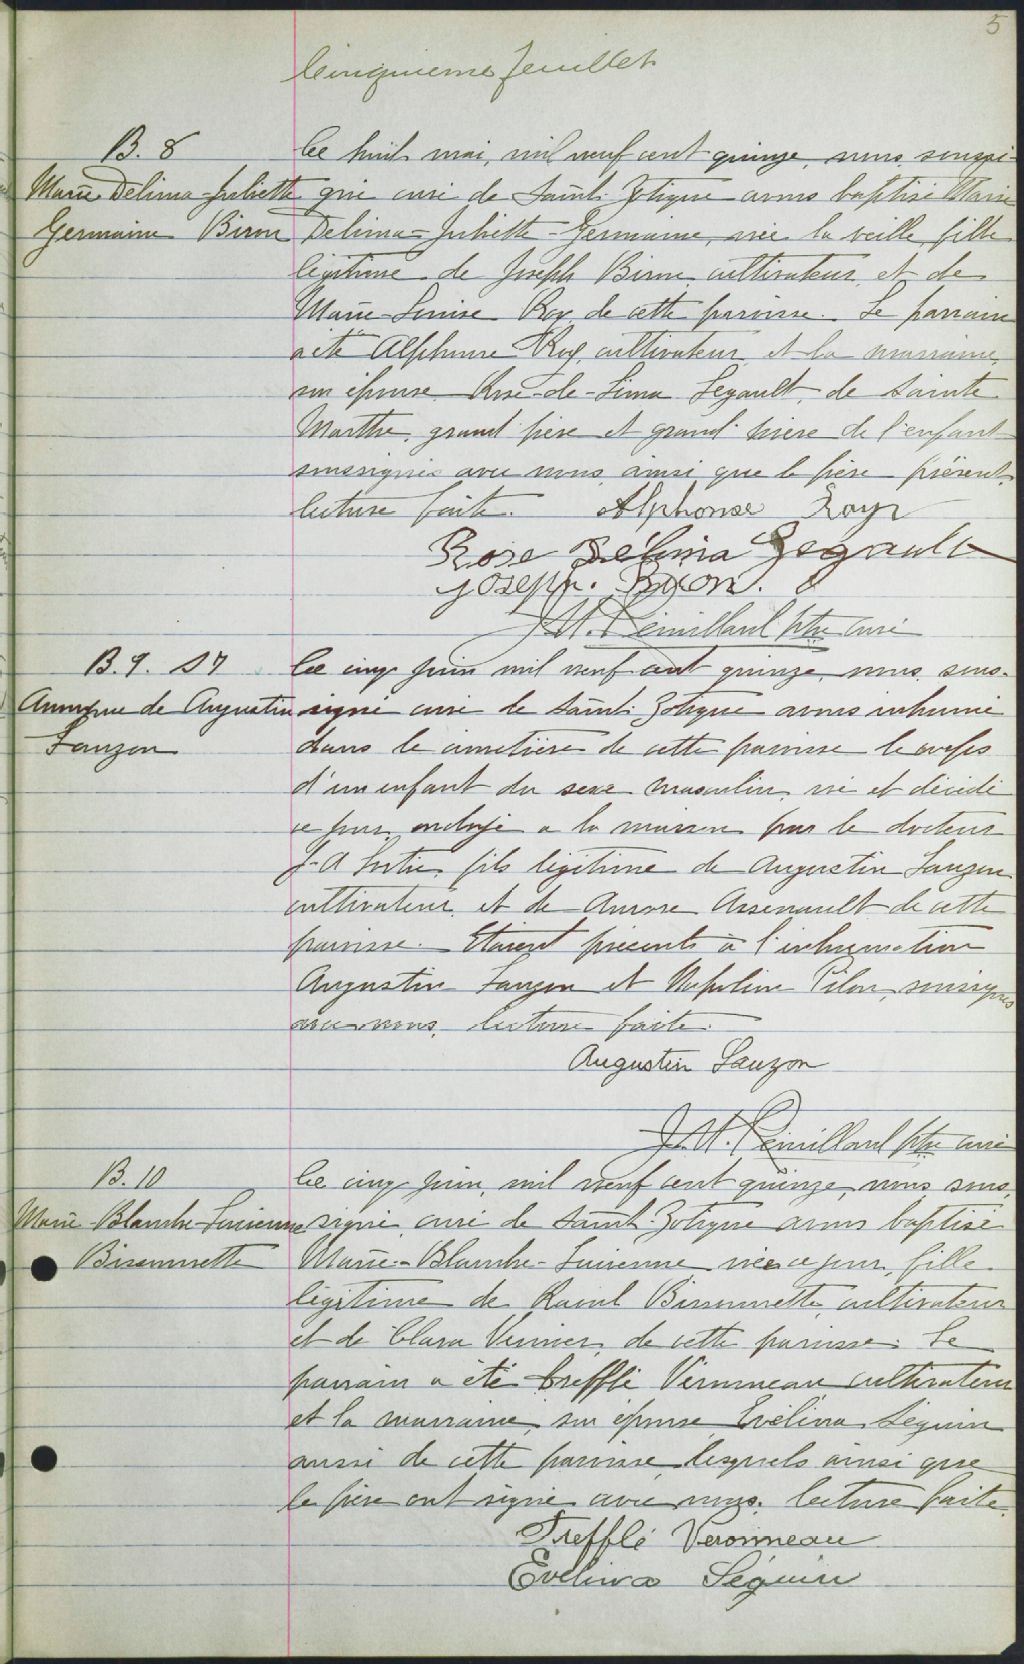 5
Cinquième feuillet
B. 8
Marie Delima-Juliette
Germaine Biron
Ce huit mai, mil neuf cent quinze, nous, soussi-
gné curé de Saint-Zotique avons baptisé Marie
Delima-Juliette-Germaine, née la veille fille
légitime de Joseph Biron, cultivateur, et de
Marie-Louise Roy, de cette paroisse. Le parrain
a été Alphonse Roy, cultivateur, et la marraine,
son épouse Rose-de-Lima Legault, de Sainte
Marthe, grand'père et grand'mère de l'enfant
soussignés avec nous, ainsi que le père présent.
lecture faite. Alphonse Royr
Rose Délima Legault
Joseph. Biron.
J.A. Rémillard ptre curé
B. 9. S 7
Anonyme de Augustin
Lauzon
Ce cinq juin mil neuf cent quinze, nous, sous-
signé curé de Saint-Zotique avons inhumé
dans le cimetière de cette paroisse le corps
d'un enfant du sexe masculin, né et décédé
ce jour, ondoyé a la maison par le docteur
J-A fils légitime de Augustin Lauzon
cultivateur, et de Aurore Arsenault de cette
paroisse. Etaient présents à l'inhumation
Augustin Lauzon et Napoléon Pilon, soussignés
avec nous, lecture faite.
Augustin Lauzon
J.A. Rémillard ptre curé
B. 10
Marie-Blanche-Lucienne
Bissonnette
Ce cinq juin, mil neuf cent quinze, nous, sous,
signé, curé de Saint-Zotique avons baptisé
Marie-Blanche-Lucienne née ce jour, fille
légitime de Raoul Bissonnette, cultivateur
et de Clara Vernier, de cette paroisse. Le
parrain a été Trefflé Véronneau cultivateur
et la marraine, son épouse, Evélina Séguin
aussi de cette paroisse, lesquels ainsi que
le père ont signé avec nous. lecture faite.
Trefflé Veronneau
Evelina Séguin